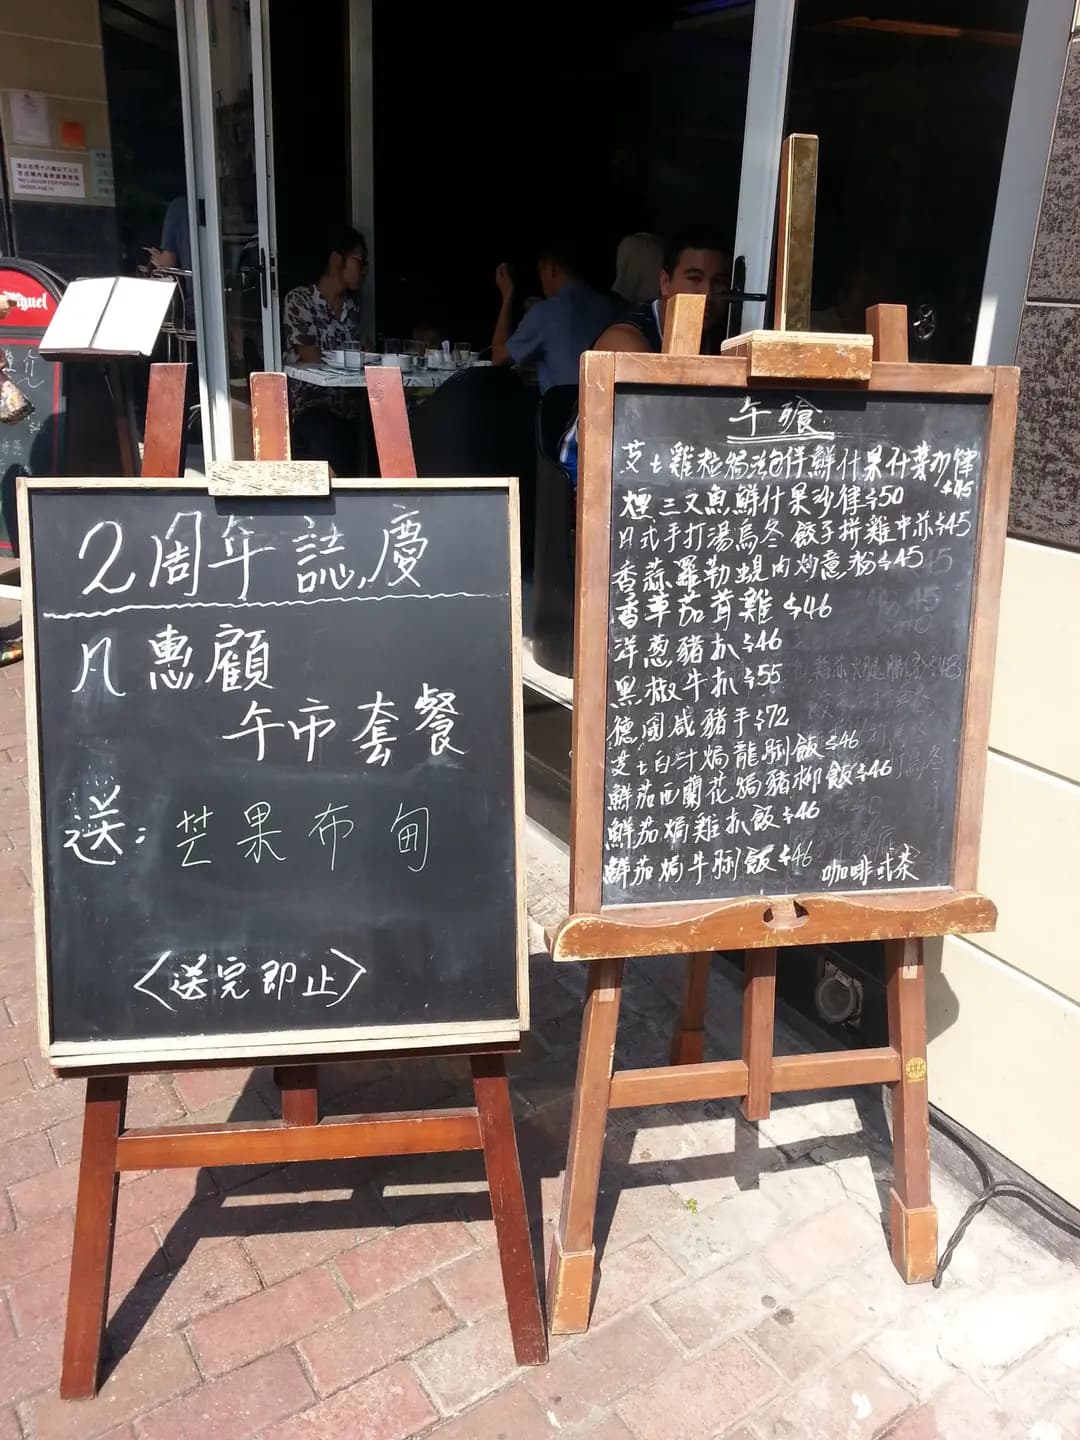 NO LIQUOR FOR PERSON
UNDER AGE 18
2周年誌慶
凡惠顧
午市套餐
送:芒果布甸
<送完即止>
午飡
芝士雞粒焗泡伴鮮什果什菜沙律
$45
煙三文魚鮮什果沙律$50
日式手打湯烏冬餃子拼雞中亦$45
香蒜羅勒蜆肉炒意粉$45
香草茄茸雞$46
洋葱豬扒$46
黑椒牛扒$55
德國咸豬手$72
芝士白汁焗龍脷飯$46
鮮茄西蘭花焗豬柳飯$46
鮮茄焗雞扒飯$46
鮮茄焗牛脷飯$46
咖啡或茶